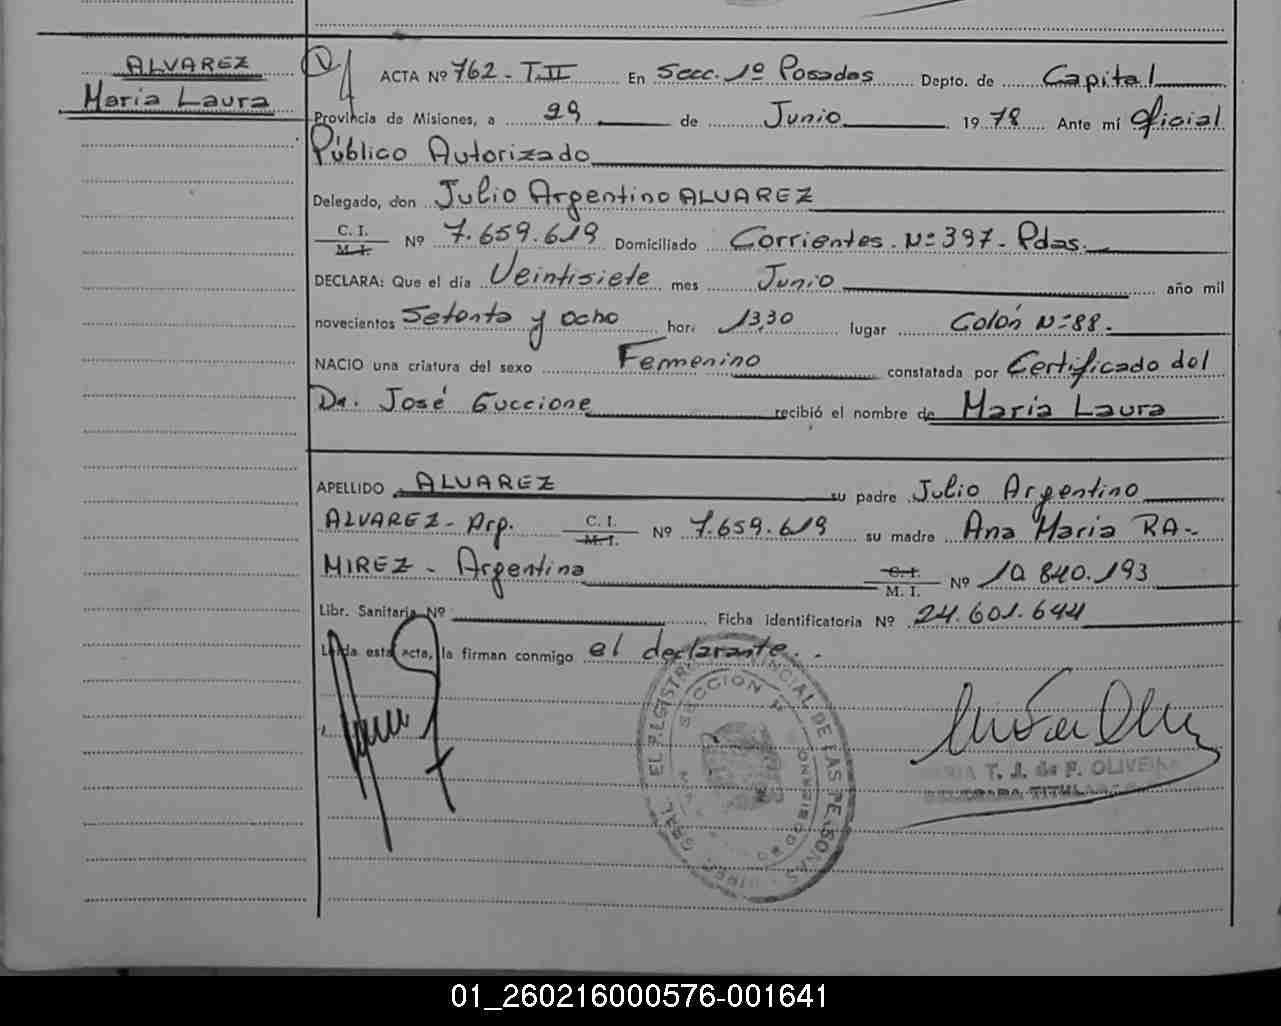 ALVAREZ
Maria Laura
ACTA Nº 762 - T.II En Secc. 1º Posadas Depto. de Capital
Provincia de Misiones, a 29 de Junio 1978 Ante mí Oficial
Público Autorizado
Delegado, don Julio Argentino ALVAREZ
C. I. M. I. Nº 7.659.619 Domiciliado Corrientes. Nº 397 - Pdas.
DECLARA: Que el día Veintisiete mes Junio año mil
novecientos Setenta y ocho hor. 13,30 lugar Colón Nº 88.
NACIO una criatura del sexo Femenino constatada por Certificado del
Dr. José Guccione recibió el nombre de Maria Laura
APELLIDO ALVAREZ su padre Julio Argentino
ALVAREZ - Arg. C. I. M. I. Nº 7.659.619 su madre Ana Maria RA-
MIREZ - Argentina C. I. M. I. Nº 10.840.193
Libr. Sanitaria Nº Ficha identificatoria Nº 24.601.644
Leída esta acta, la firman conmigo el declarante..
SECCION
DE LAS PERSONAS
T. J. de F. OLIVEIRA
TITULAR
01_260216000576-001641